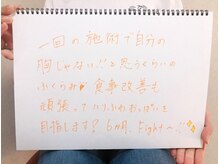 一回の施術で自分の
胸じゃない!!と思うくらいの
ふくらみ♥ 食事改善も
頑張ってハリふわおっぱいを
目指します? 6ヵ月、Fightー!!